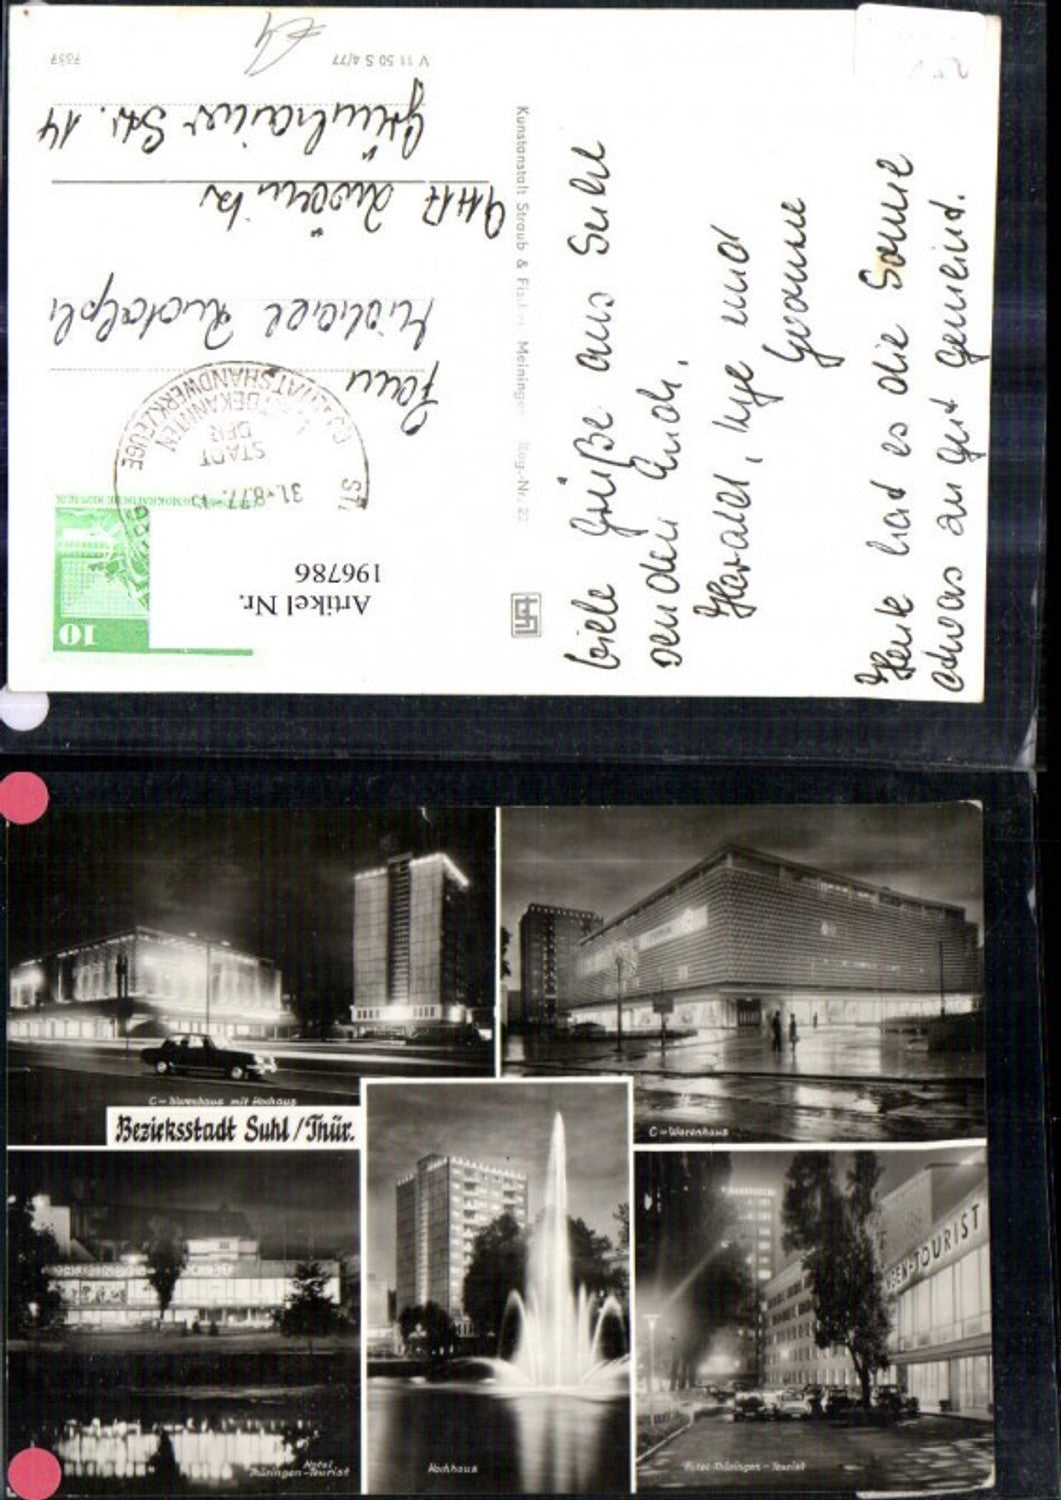 Viele Grüße aus Suhl
senden Euch,
Harald, Inge und
Yvonne
Heute hat es die Sonne
etwas zu gut gemeint.
Kunstanstalt Straub & Fischer Meiningen
Reg.-Nr. 22
V 11 50 S 4/77
7837
Fam
Michael Rudolph
9417 Zwönitz
Grünhainer Str. 14
STADT
DER
WELTBEKANNTEN
QUALITÄTSHANDWERKZEUGE
31.-8.77.
10
Artikel Nr.
196786
C-Warenhaus mit Hochhaus
C-Warenhaus
Bezirksstadt Suhl/Thür.
Hotel
Thüringen-Tourist
Hochhaus
Hotel Thüringen-Tourist